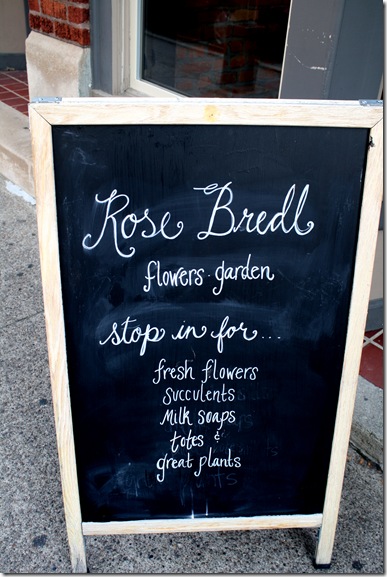 Rose Bredl
flowers · garden
stop in for...
fresh flowers
succulents
Milk soaps
totes &
great plants